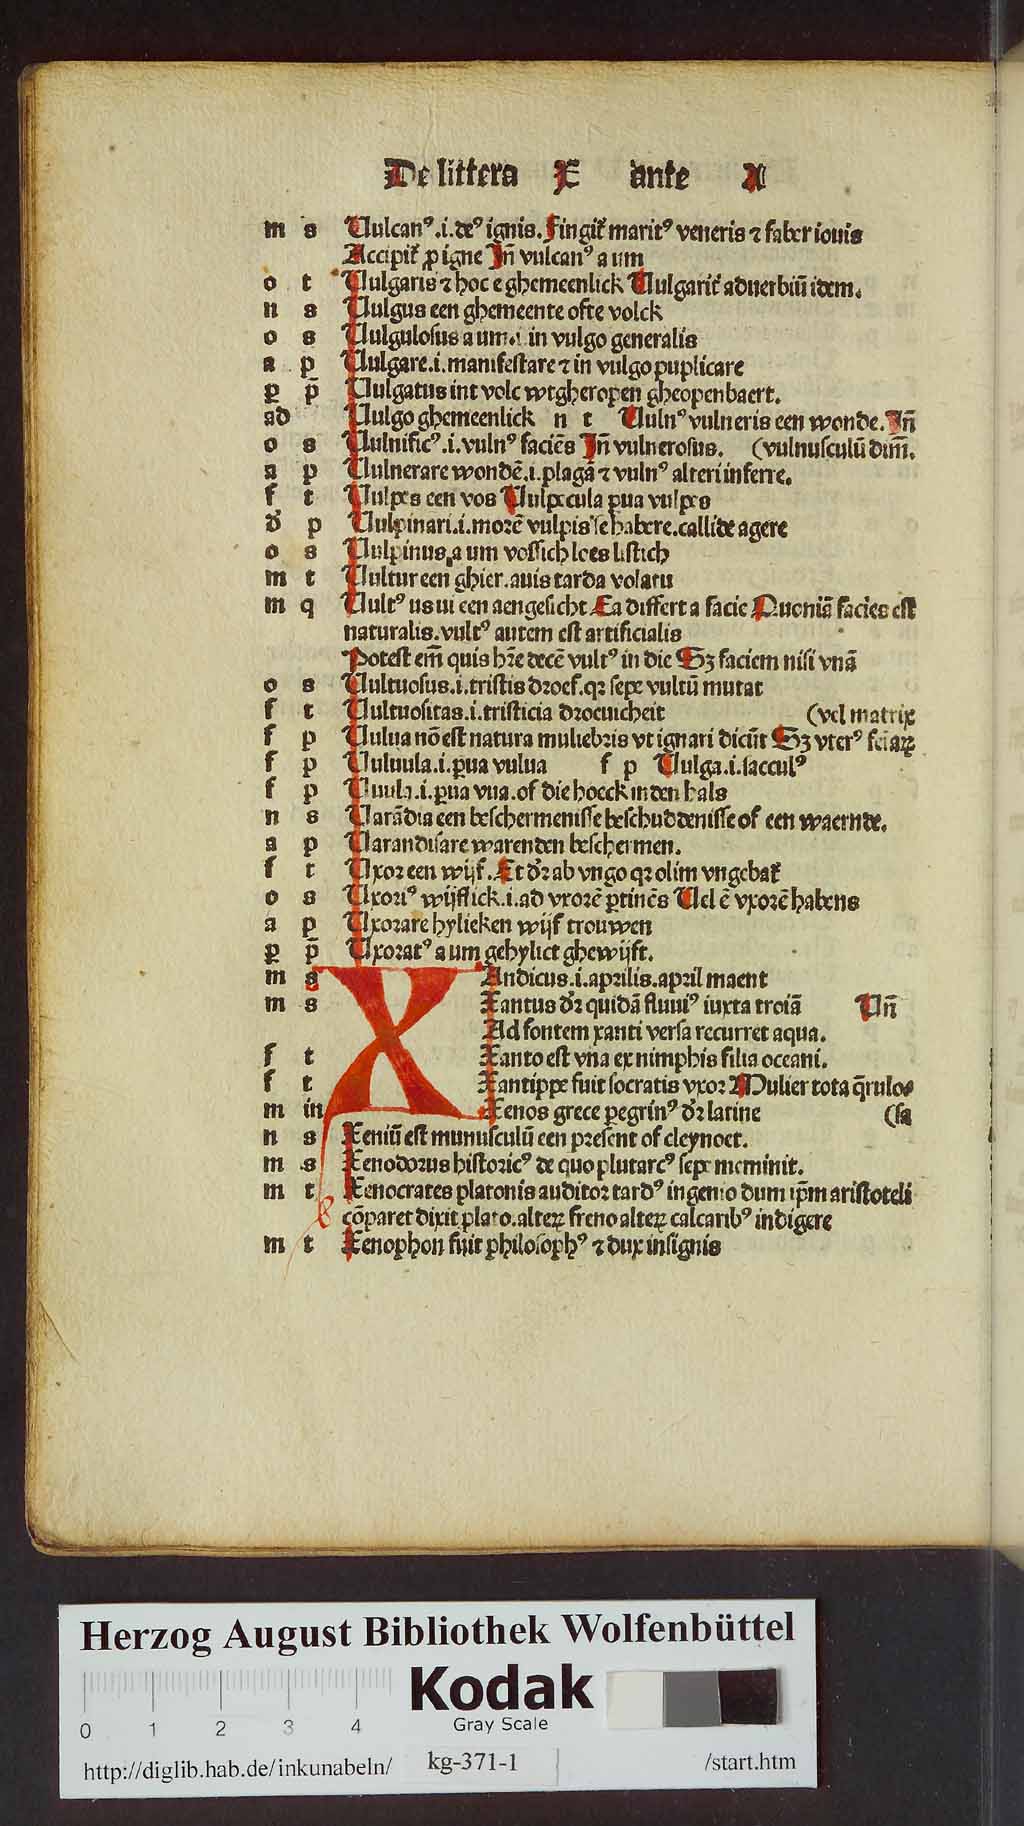 De littera X ante A
m s Vulcanꝰ.i.deꝰ ignis. Fingit᷑ maritꝰ veneris ⁊ faber iouis
Accipit᷑ ꝓ igne Jn̄ vulcanꝰ a um
o t Vulgaris ⁊ hoc e ghemeenlick Vulgarit᷑ aduerbiū idem.
n s Vulgus een ghemeente ofte volck
o s Vulgulosus a um.i. in vulgo generalis
a p Vulgare.i.manifestare ⁊ in vulgo puplicare
ꝑ p̄ Vulgatus int volc wtgheropen gheopenbaert.
ad Vulgo ghemeenlick n t Vulnꝰ vulneris een wonde. Jn̄
o s Vulnificꝰ.i.vulnꝰ faciēs Jn̄ vulnerosus. (vulnusculū dim̄.
a p Vulnerare wondē.i.plagā ⁊ vulnꝰ alteri inferre.
f t Vulpes een vos Vulpecula ꝑua vulpes
d̄ p Vulpinari.i.morē vulpis se habere.callide agere
o s Vulpinus a um vossich loes listich
m t Vultur een ghier.auis tarda volatu
m q Vultꝰ us ui een aengesicht Ea differt a facie Quoniā facies est
naturalis.vultꝰ autem est artificialis
Potest em̄ quis hr̄e decē vultꝰ in die Sꝫ faciem nisi vnā
o s Vultuosus.i.tristis droef.qꝛ sepe vultū mutat
f t Vultuositas.i.tristicia droeuicheit (vel matrix
f p Vulua nō est natura muliebris vt ignari dicūt Sꝫ vterꝰ feīaꝝ
f p Vuluula.i.ꝑua vulua f p Vulga.i.sacculꝰ
f p Vuula.i.ꝑua vua.of die hoeck in den hals
n s Varādia een beschermenisse beschuddenisse of een waernde.
a p Varandisare warenden beschermen.
f t Vxor een wijf. Et dr̄ ab vngo qꝛ olim vngebat᷑
o s Vxoriꝰ wijflick.i.ad vxorē ꝑtinēs Vel ē vxorē habens
a p Vxorare hylieken wijf trouwen
ꝑ p̄ Vxoratꝰ a um gehylict ghewijft.
m s XAndicus.i.aprilis.april maent
m s Xantus dr̄ quidā fluuiꝰ iuxta troiā Vn̄
Ad fontem xanti versa recurret aqua.
f t Xanto est vna ex nimphis filia oceani.
f t Xantippe fuit socratis vxor Mulier tota q̄rulo
m in Xenos grece ꝑegrinꝰ dr̄ latine (sa
n s Xeniū est munusculū een present of cleynoet.
m s Xenodorus historicꝰ de quo plutarcꝰ sepe meminit.
m t Xenocrates platonis auditor tardꝰ ingenio dum ip̄m aristoteli
cōparet dixit plato.alteꝝ freno alteꝝ calcaribꝰ indigere
m t Xenophon fuit philosophꝰ ⁊ dux insignis
Herzog August Bibliothek Wolfenbüttel
0 1 2 3 4
Kodak
Gray Scale
http://diglib.hab.de/inkunabeln/ kg-371-1 /start.htm